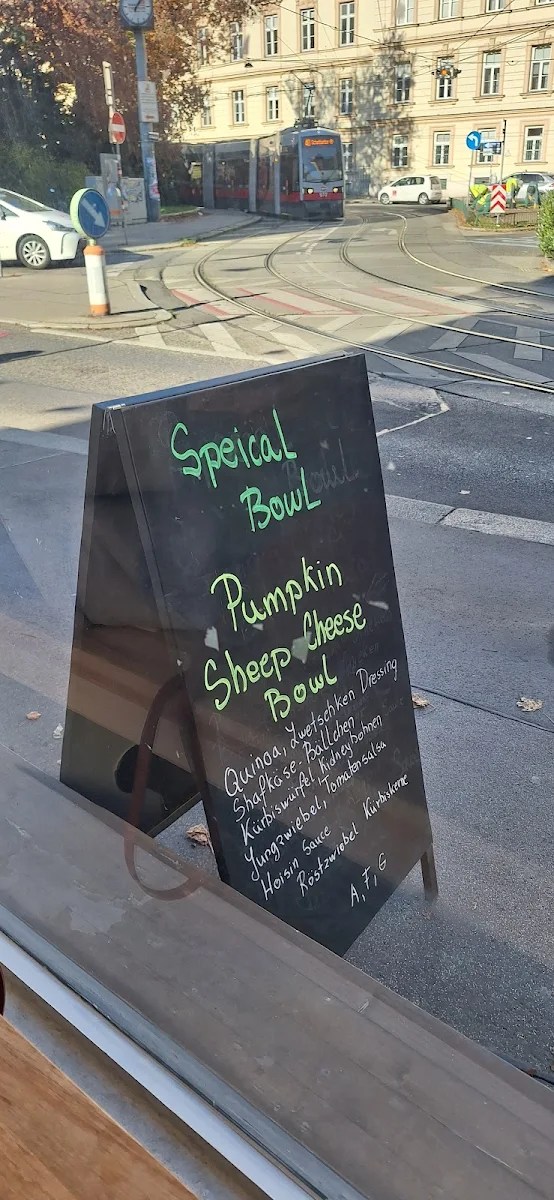 Speical
Bowl
Pumpkin
Sheep Cheese
Bowl
Quinoa, Zwetschken Dressing
Shafkäse-Bällchen
Kürbiswürfel, Kidneybohnen
Jungzwiebel, Tomatensalsa
Hoisin Sauce Kürbiskerne
Röstzwiebel
A, F, G